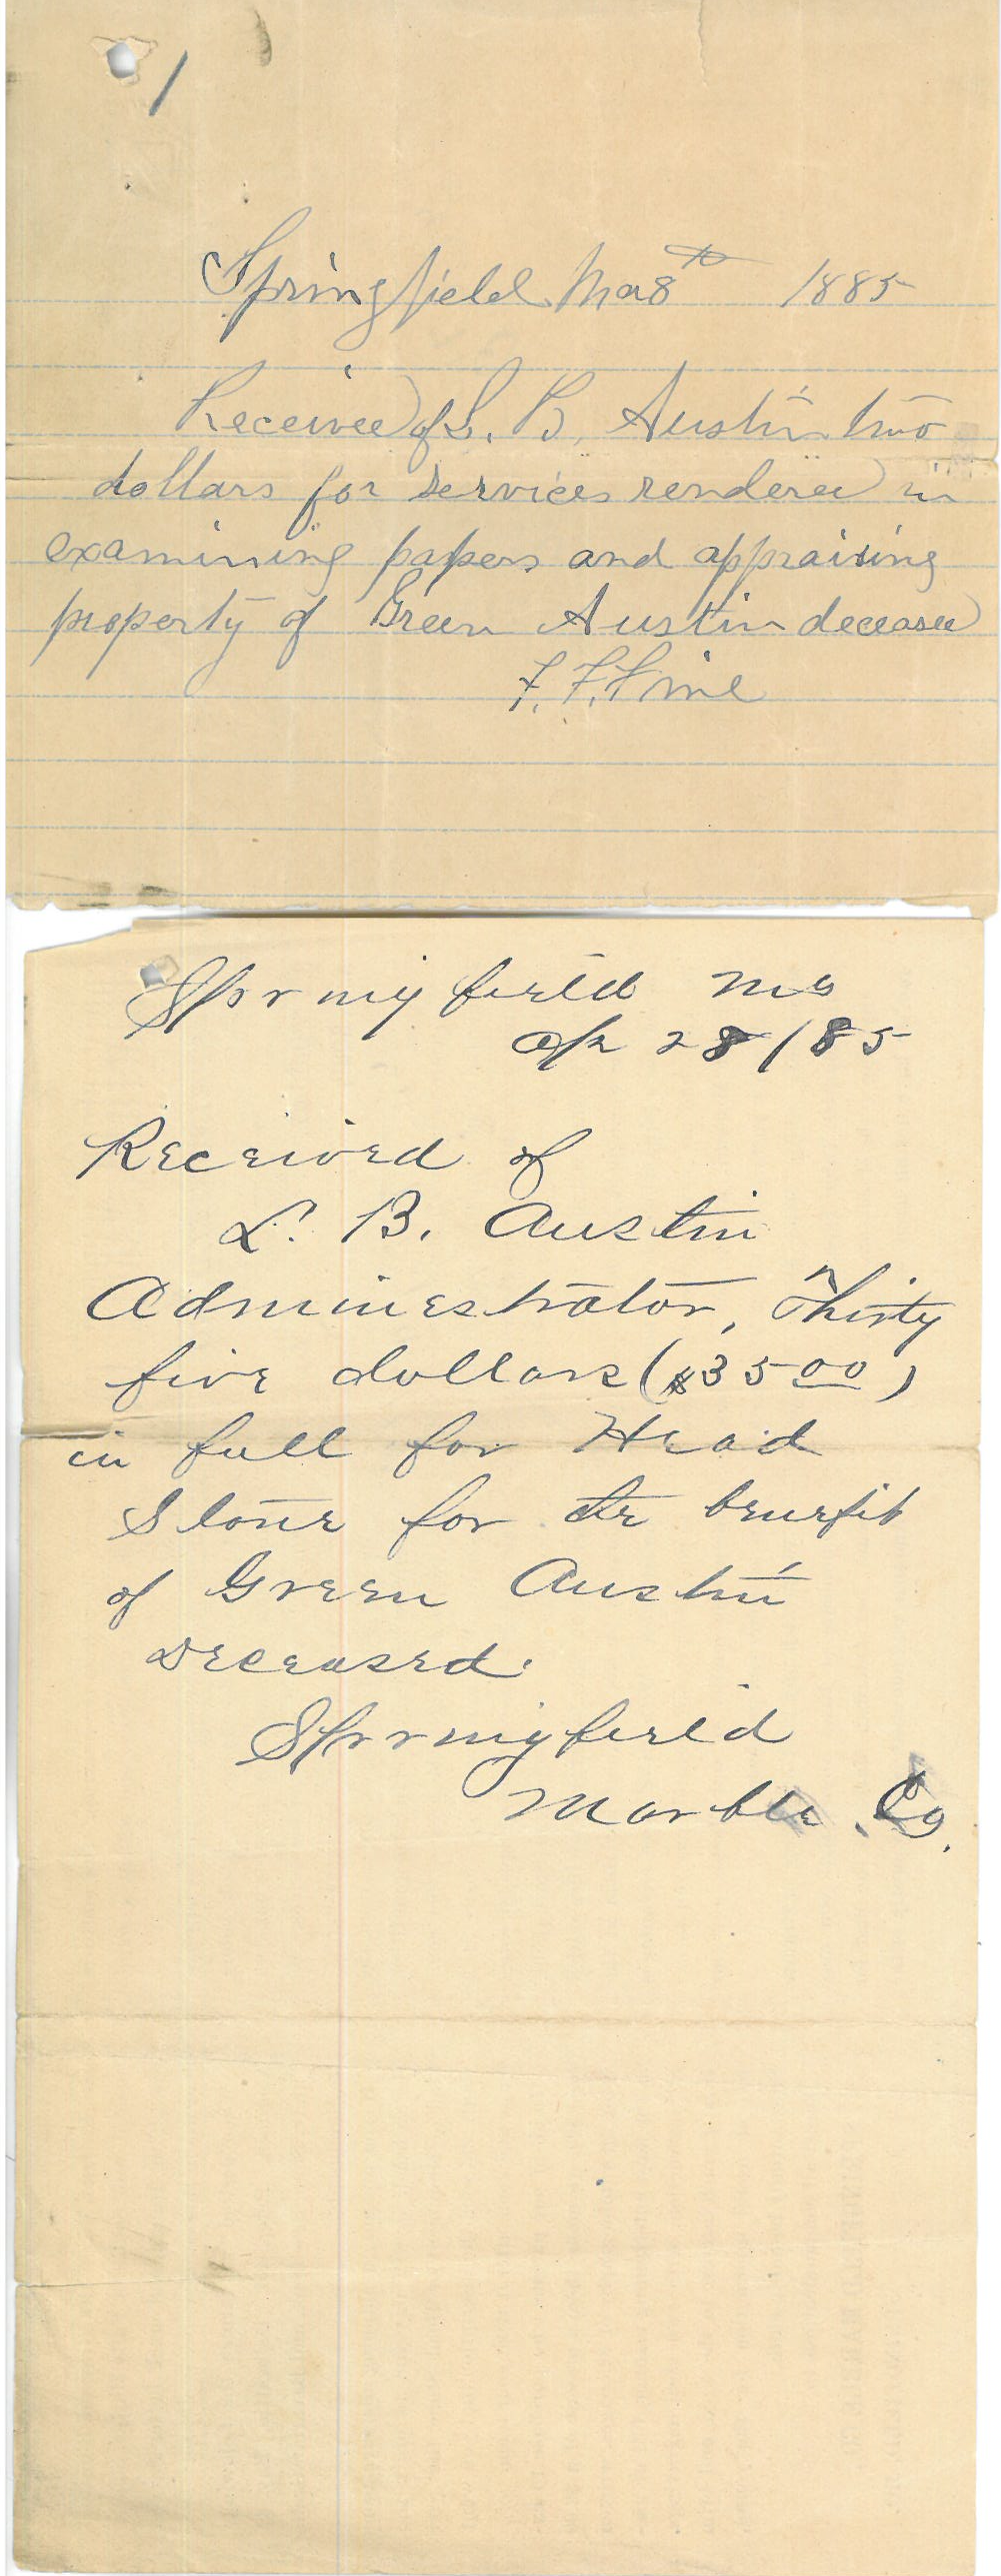 1
Springfield Mar 8th 1885
Received of L. B. Austin two
dollars for services rendered in
examining papers and appraising
property of Green Austin deceased
F. F. Fine
Springfield Mo
Ap 28/85
Received of
L. B. Austin
Administrator, Thirty
five dollars ($35 00)
in full for Head
Stone for the benefit
of Green Austin
Deceased.
Springfield
Marble Co.